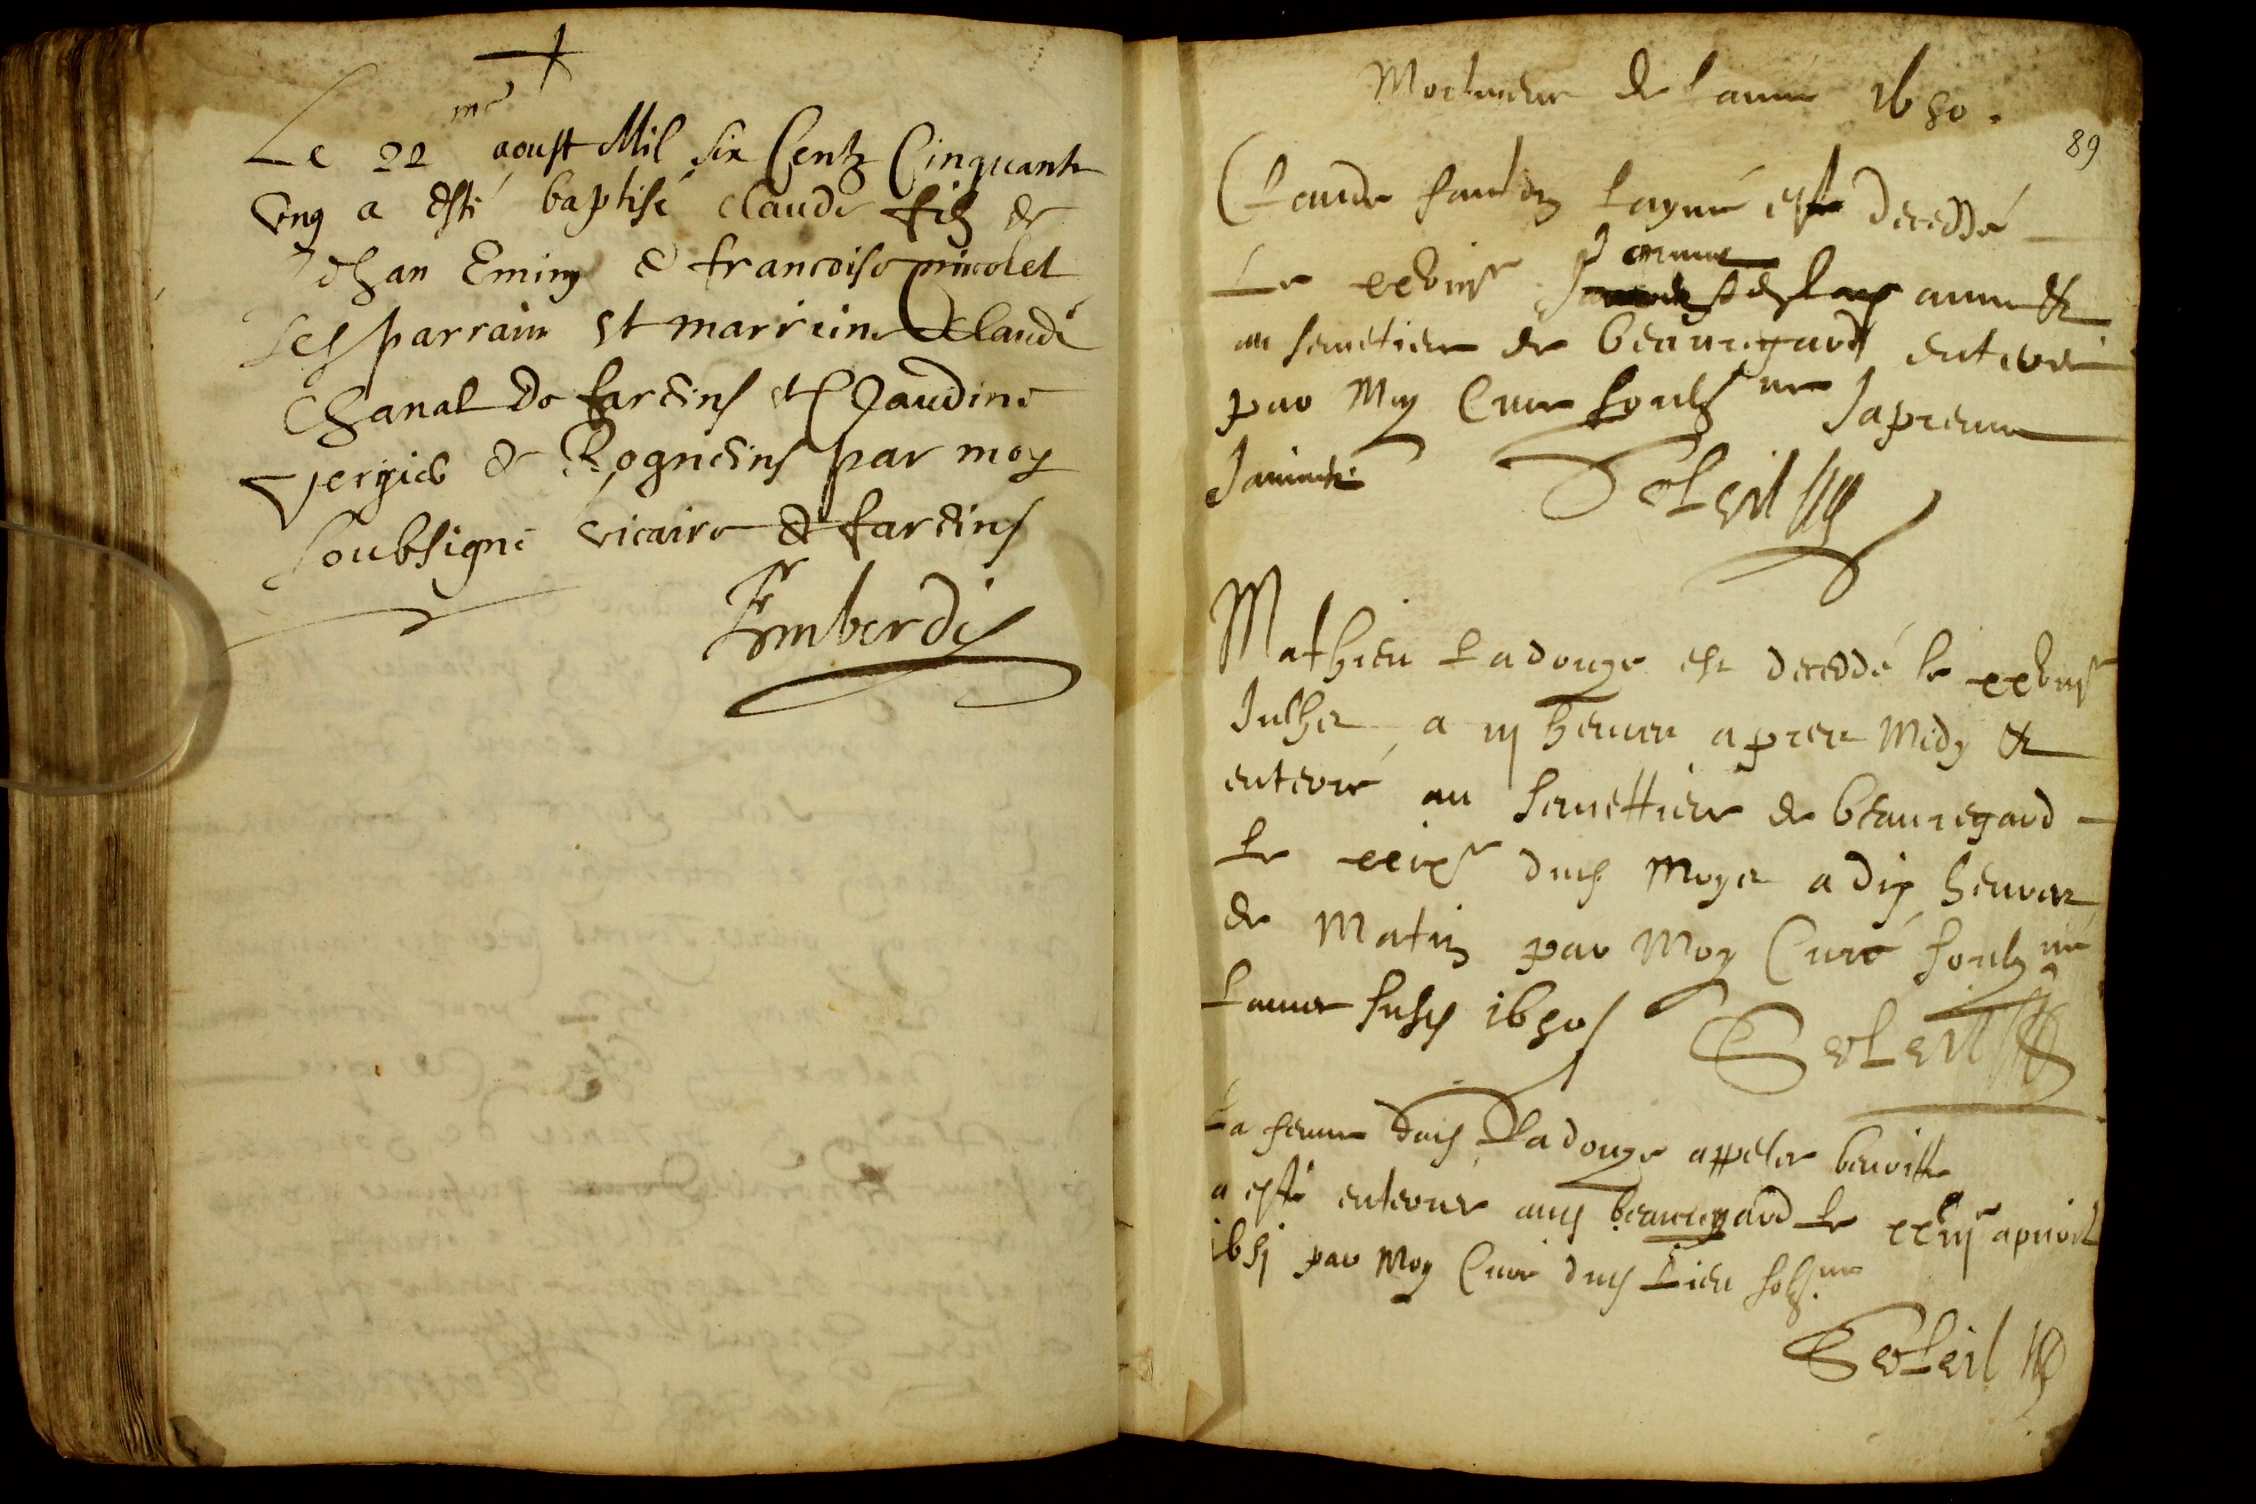 Le 22 me aoust Mil six Centz Cinquante
Ung a esté baptisé Claude filz de
Jehan Eminy & francoise nicolet
Ses parrain et marrine Claude
Chanal de fareins et Claudine
vergier de Rogneins par moy
soubsigné vicaire de fareins
Imberdis
Mortueure de Lanne 1650.
89
Claude Layne est deceddé
Le xxviiie
au semetiere de beauregard enterré
par Moy Cure soubzne
Janvier
Soleil
Mathieu Ladouze est deceddé le xxviiie
Julhet a iij heures apres Midy et
enterré au semettiere de beauregard
Le xxixe dud Moys a dix heures
de Matin par Moy Curé soubzne
Lannee susd 1650
Soleil
La femme dud Ladouze appelee benoiste
a esté enterree aud beauregard Le apvril
1651 par Moy Cure dud Lieu sobzne
Soleil